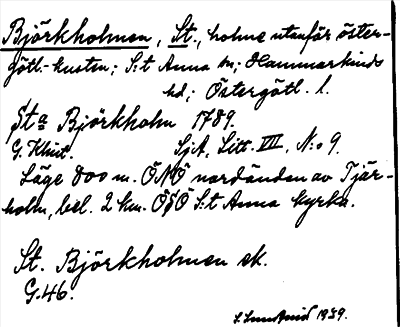 Björkholmen, St., holme utanför öster-
götl.-kusten; S:t Anna sn; Hammarkinds
hd; Östergötl. l.
Sta Björkholm 1789.
G. Klint. SjA, Litt. VIII, N:o 9.
Läge 800 m. ÖNÖ nordändan av Tjär-
holm, bel. 2 km. ÖSÖ S:t Anna kyrka.
St. Björkholmen ek.
G.46.
1939.